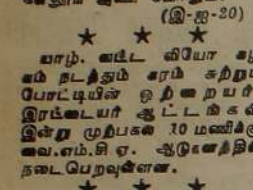 (இ-ஐ-20)
யாழ். வட்ட லியோ கழ
கம் நடத்தும் கரம் சுற்றுப்
போட்டியின் ஒற்றையர்
இரட்டையர் ஆட்டங்கள்
இன்று முற்பகல் 10 மணிக்கு
வை.எம்.சி ஏ. ஆடுகளத்தில்
நடைபெறவுள்ளன.